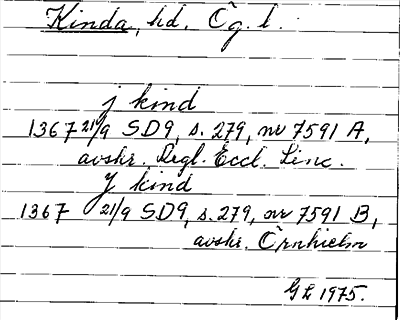 Kinda, hd. Ög. l.
j kind
1367 21/9 SD9, s. 279, nr 7591 A,
avskr. Regl. Eccl. Linc.
J kind
1367 21/9 SD9, s. 279, nr 7591 B,
avskr. Örnhielm
GL 1975.